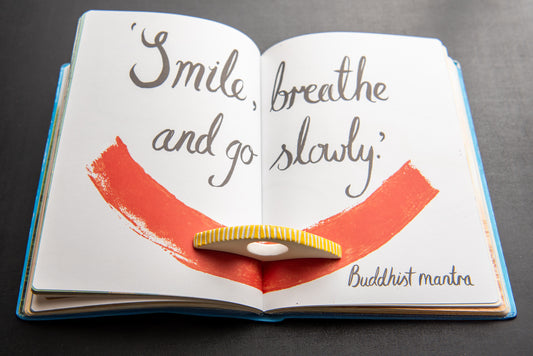 'Smile, breathe
and go slowly.'
Buddhist mantra